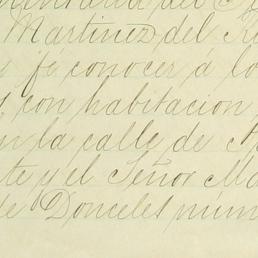 mentaria del
Martinez del R
fé conocer á lo
con habitacion
n la calle de A
te y el Señor Ma
de Donceles núm